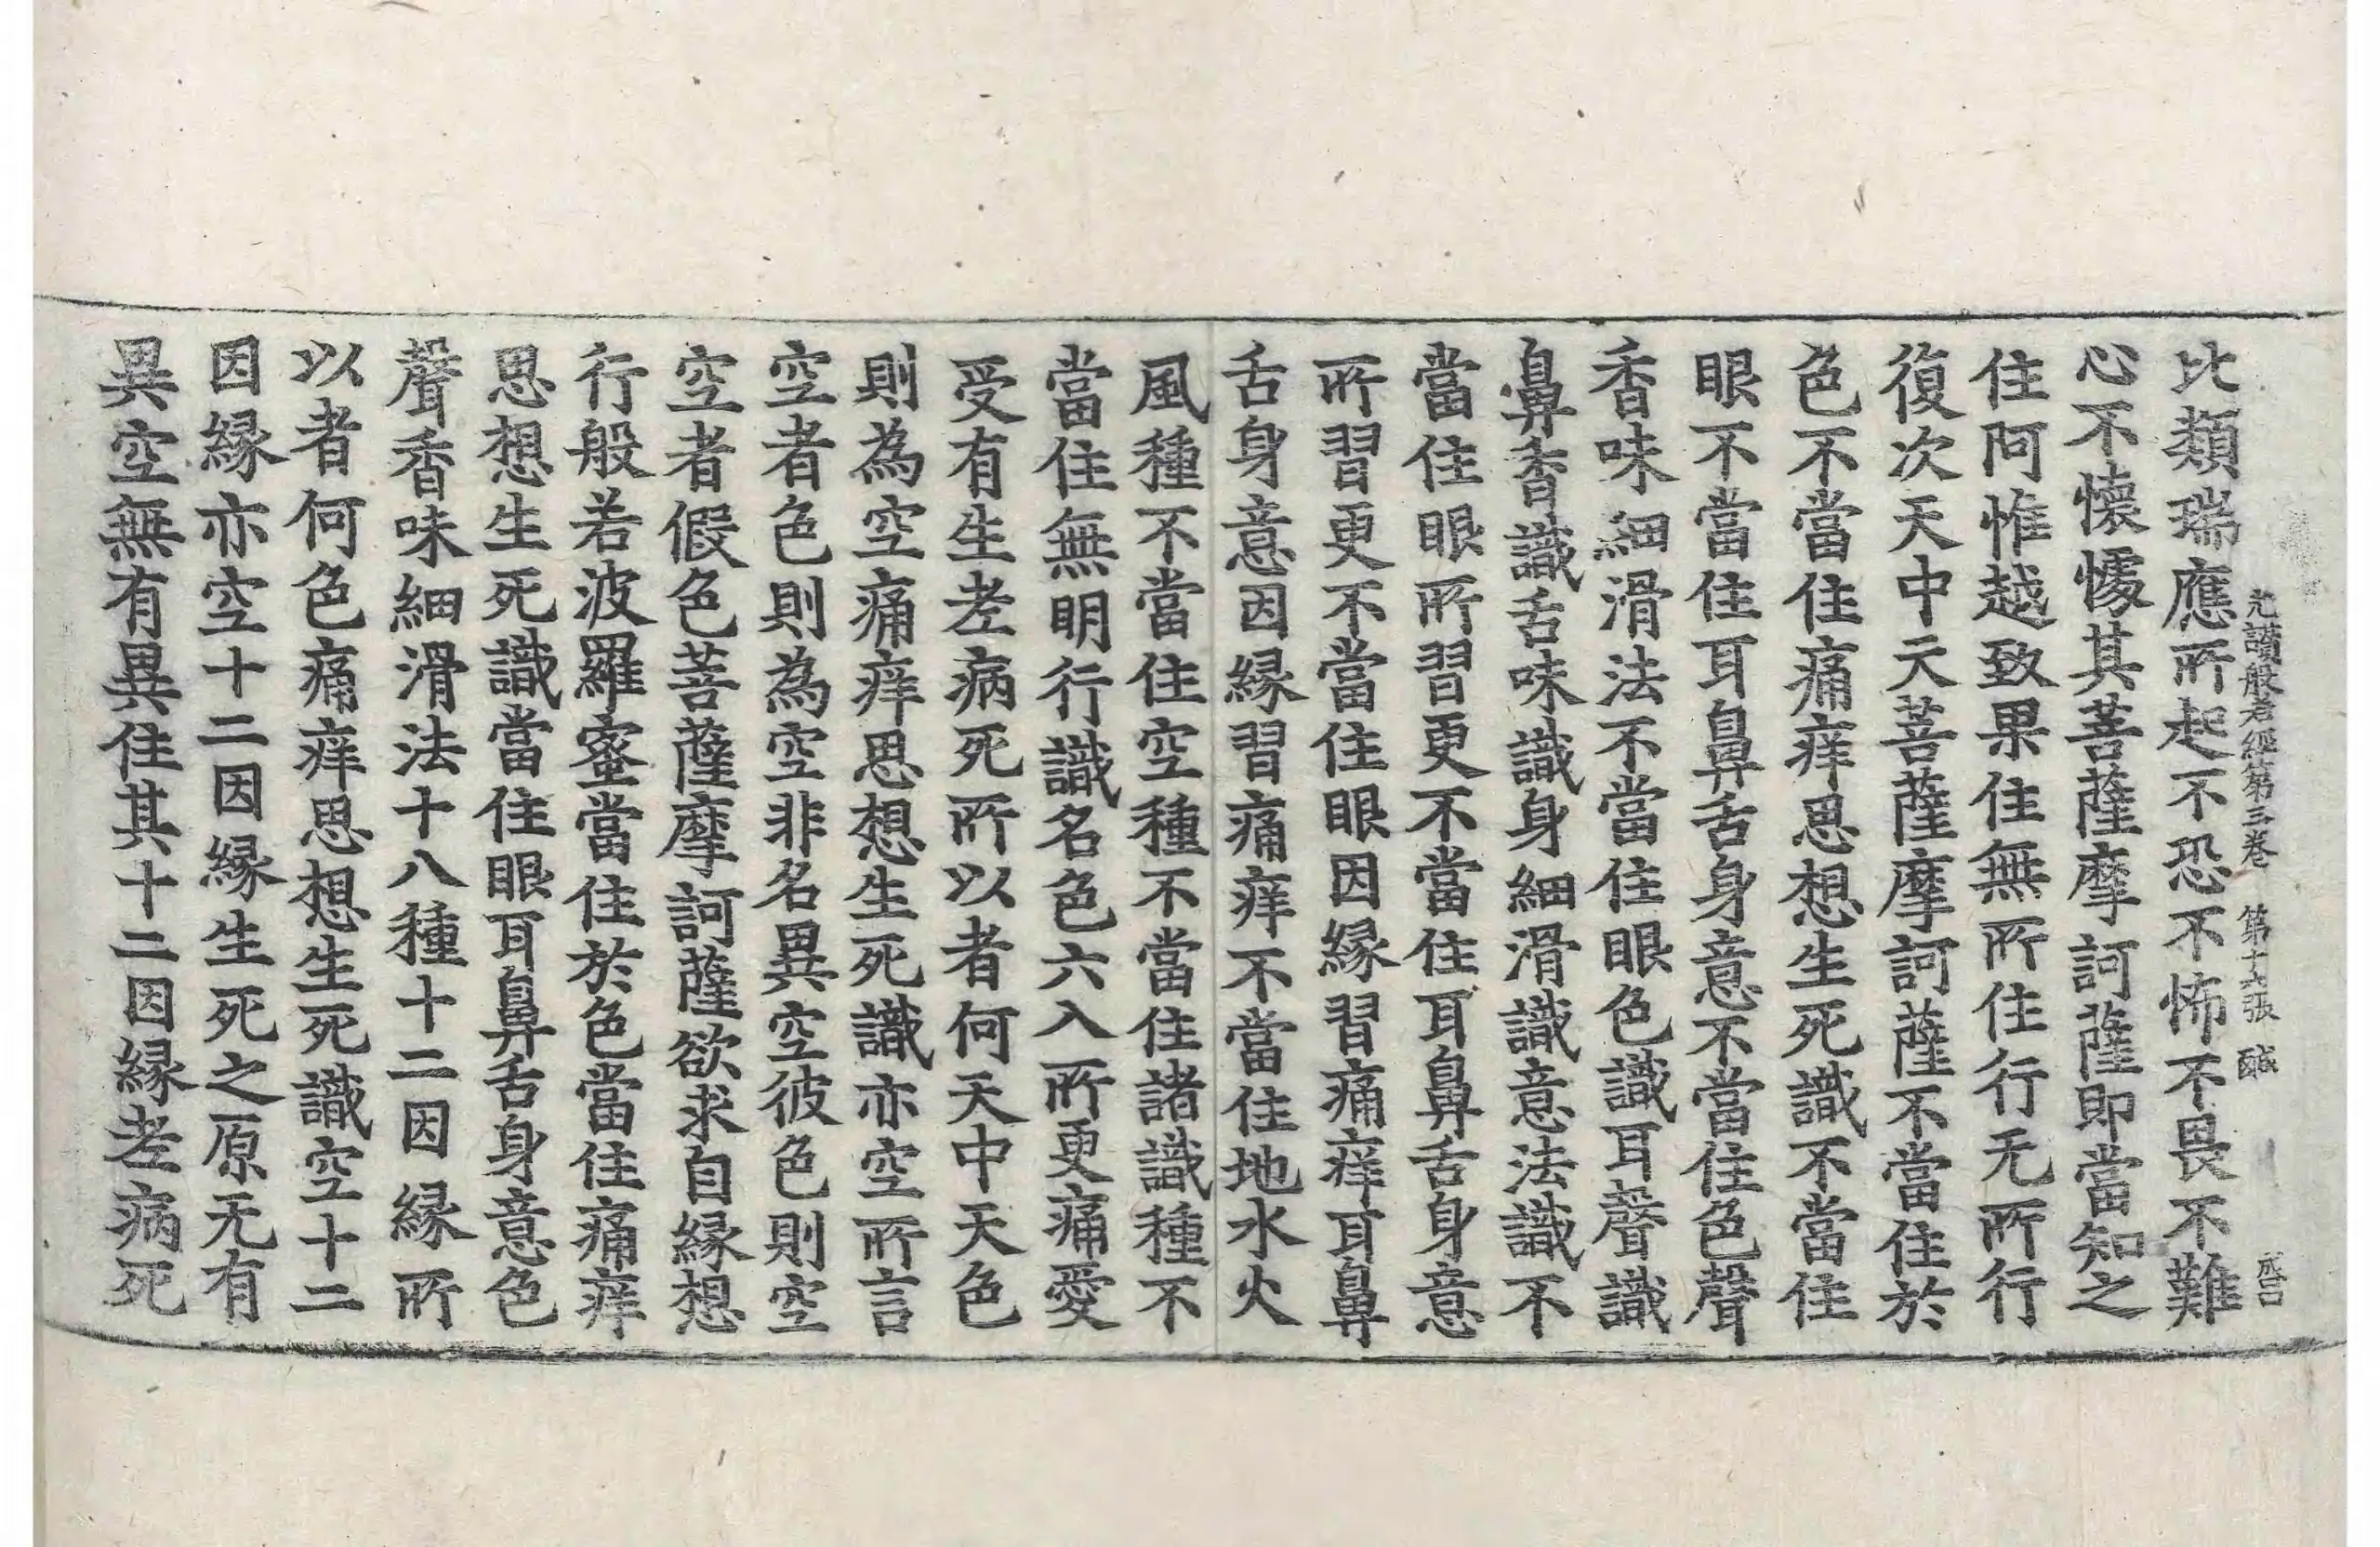 光讚般若經第三卷　第十六張　鹹
比類瑞應所起不恐不怖不畏不難
心不懷懅其菩薩摩訶薩即當知之
住阿惟越致果住無所住行无所行
復次天中天菩薩摩訶薩不當住於
色不當住痛痒思想生死識不當住
眼不當住耳鼻舌身意不當住色聲
香味細滑法不當住眼色識耳聲識
鼻香識舌味識身細滑識意法識不
當住眼所習更不當住耳鼻舌身意
所習更不當住眼因緣習痛痒耳鼻
舌身意因緣習痛痒不當住地水火
風種不當住空種不當住諸識種不
當住無明行識名色六入所更痛愛
受有生老病死所以者何天中天色
則為空痛痒思想生死識亦空所言
空者色則為空非名異空彼色則空
空者假色菩薩摩訶薩欲求自緣想
行般若波羅蜜當住於色當住痛痒
思想生死識當住眼耳鼻舌身意色
聲香味細滑法十八種十二因緣所
以者何色痛痒思想生死識空十二
因緣亦空十二因緣生死之原无有
異空無有異住其十二因緣老病死